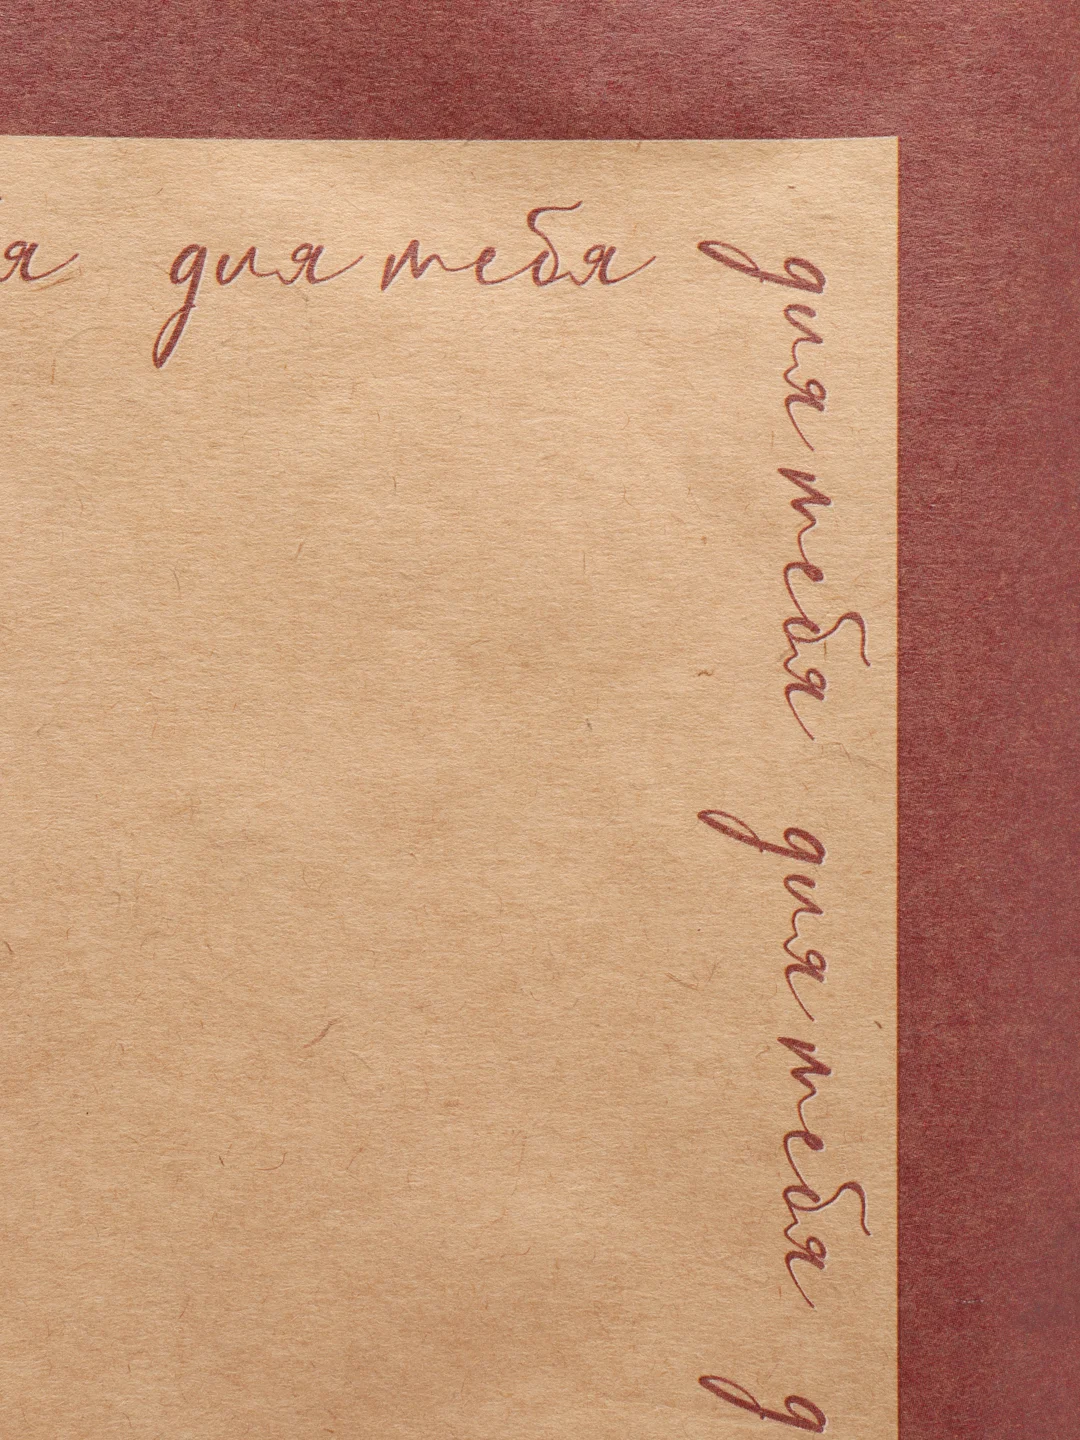 я для тебя
для тебя для тебя д